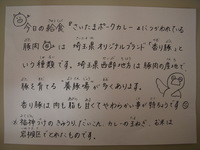 今日の給食『さいたまポークカレー』につかわれている
豚肉は 埼玉県オリジナルブランド「香り豚」と
いう種類です。埼玉県西部地方は 豚肉の産地で
豚を育てる 養豚場が 多くあります。
香り豚は肉も脂も甘くてやわらかい事が特ちょうです
※福神づけのきゅうり、だいこん、カレーの玉ねぎ、お米は
岩槻区でとれたものです。